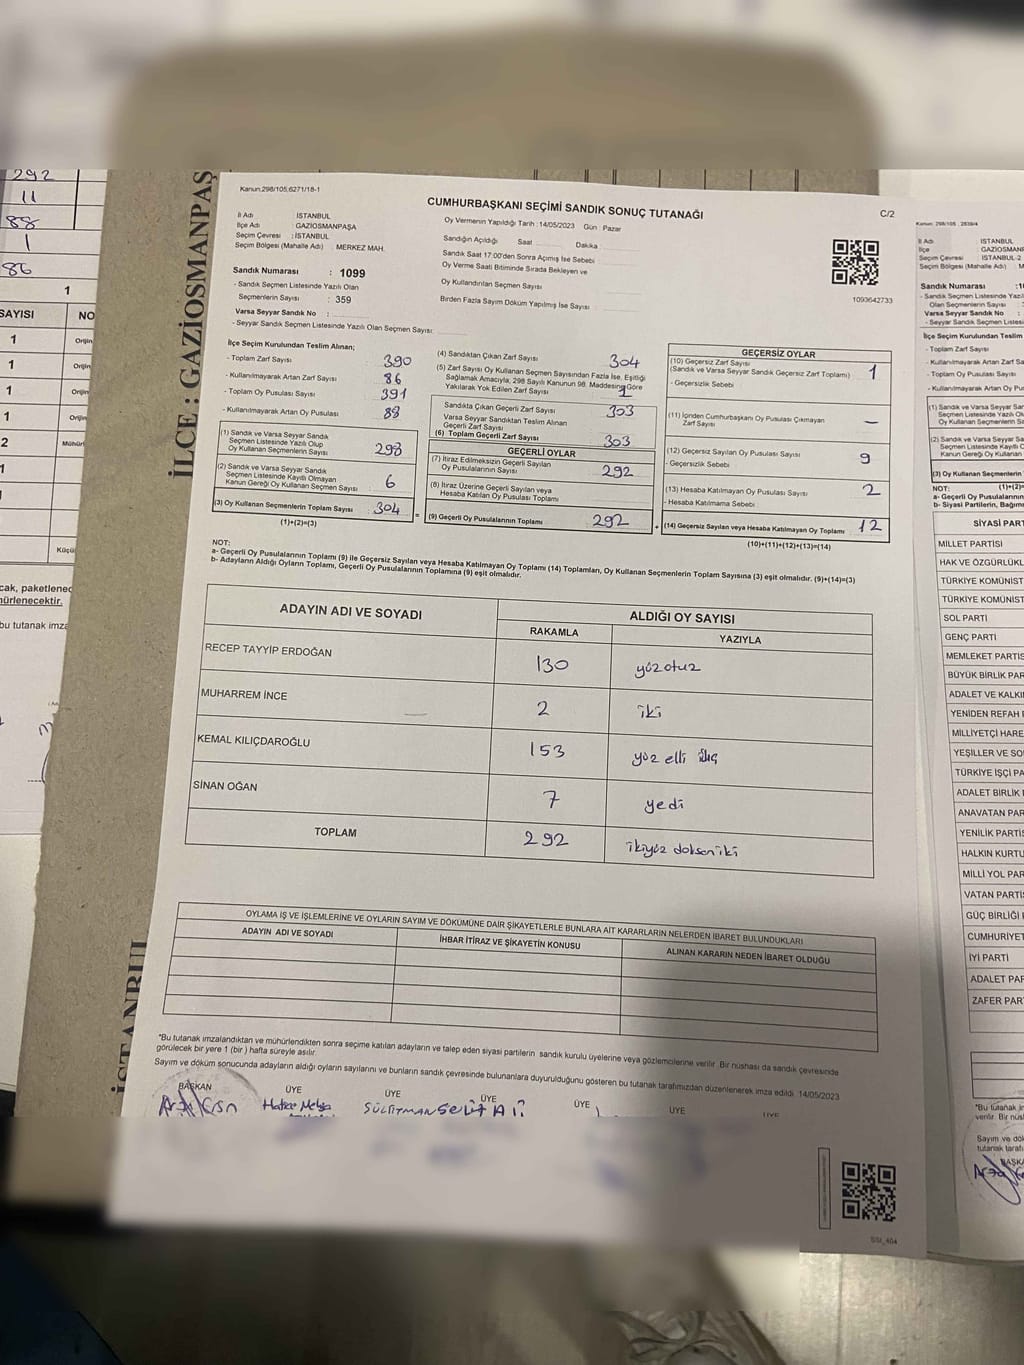 Kanun:298/105;6271/18-1
CUMHURBAŞKANI SEÇİMİ SANDIK SONUÇ TUTANAĞI
C/2
İl Adı : İSTANBUL
İlçe Adı : GAZİOSMANPAŞA
Seçim Çevresi : İSTANBUL
Seçim Bölgesi (Mahalle Adı) : MERKEZ MAH.
Oy Vermenin Yapıldığı Tarih : 14/05/2023 Gün : Pazar
Sandığın Açıldığı Saat Dakika
Sandık Saat 17:00'den Sonra Açımış İse Sebebi
Oy Verme Saati Bitiminde Sırada Bekleyen ve
Oy Kullandırılan Seçmen Sayısı
Birden Fazla Sayım Döküm Yapılmış İse Sayısı
1093642733
Sandık Numarası : 1099
- Sandık Seçmen Listesinde Yazılı Olan
Seçmenlerin Sayısı : 359
Varsa Seyyar Sandık No :
- Seyyar Sandık Seçmen Listesinde Yazılı Olan Seçmen Sayısı:
İlçe Seçim Kurulundan Teslim Alınan;
- Toplam Zarf Sayısı 390
- Kullanılmayarak Artan Zarf Sayısı 86
- Toplam Oy Pusulası Sayısı 391
- Kullanılmayarak Artan Oy Pusulası 88
(1) Sandık ve Varsa Seyyar Sandık
Seçmen Listesinde Yazılı Olup
Oy Kullanan Seçmenlerin Sayısı 298
(2) Sandık ve Varsa Seyyar Sandık
Seçmen Listesinde Kayıtlı Olmayan
Kanun Gereği Oy Kullanan Seçmen Sayısı 6
(3) Oy Kullanan Seçmenlerin Toplam Sayısı 304
(1)+(2)=(3)
(4) Sandıktan Çıkan Zarf Sayısı 304
(5) Zarf Sayısı Oy Kullanan Seçmen Sayısından Fazla İse, Eşitliği
Sağlamak Amacıyla; 298 Sayılı Kanunun 98. Maddesine Göre
Yakılarak Yok Edilen Zarf Sayısı
Sandıkta Çıkan Geçerli Zarf Sayısı 303
Varsa Seyyar Sandıktan Teslim Alınan
Geçerli Zarf Sayısı
(6) Toplam Geçerli Zarf Sayısı 303
GEÇERLİ OYLAR
(7) İtiraz Edilmeksizin Geçerli Sayılan
Oy Pusulalarının Sayısı 292
(8) İtiraz Üzerine Geçerli Sayılan veya
Hesaba Katılan Oy Pusulası Toplamı
(9) Geçerli Oy Pusulalarının Toplamı 292
GEÇERSİZ OYLAR
(10) Geçersiz Zarf Sayısı
(Sandık ve Varsa Seyyar Sandık Geçersiz Zarf Toplamı) 1
- Geçersizlik Sebebi
(11) İçinden Cumhurbaşkanı Oy Pusulası Çıkmayan
Zarf Sayısı —
(12) Geçersiz Sayılan Oy Pusulası Sayısı 9
- Geçersizlik Sebebi
(13) Hesaba Katılmayan Oy Pusulası Sayısı 2
- Hesaba Katılmama Sebebi
(14) Geçersiz Sayılan veya Hesaba Katılmayan Oy Toplamı 12
(10)+(11)+(12)+(13)=(14)
NOT:
a- Geçerli Oy Pusulalarının Toplamı (9) ile Geçersiz Sayılan veya Hesaba Katılmayan Oy Toplamı (14) Toplamları, Oy Kullanan Seçmenlerin Toplam Sayısına (3) eşit olmalıdır. (9)+(14)=(3)
b- Adayların Aldığı Oyların Toplamı, Geçerli Oy Pusulalarının Toplamına (9) eşit olmalıdır.
ADAYIN ADI VE SOYADI
ALDIĞI OY SAYISI
RAKAMLA YAZIYLA
RECEP TAYYİP ERDOĞAN 130 yüzotuz
MUHARREM İNCE 2 iki
KEMAL KILIÇDAROĞLU 153 yüz elli üç
SİNAN OĞAN 7 yedi
TOPLAM 292 ikiyüz doksan iki
OYLAMA İŞ VE İŞLEMLERİNE VE OYLARIN SAYIM VE DÖKÜMÜNE DAİR ŞİKAYETLERLE BUNLARA AİT KARARLARIN NELERDEN İBARET BULUNDUKLARI
ADAYIN ADI VE SOYADI İHBAR İTİRAZ VE ŞİKAYETİN KONUSU ALINAN KARARIN NEDEN İBARET OLDUĞU
*Bu tutanak imzalandıktan ve mühürlendikten sonra seçime katılan adayların ve talep eden siyasi partilerin sandık kurulu üyelerine veya gözlemcilerine verilir. Bir nüshası da sandık çevresinde
görülecek bir yere 1 (bir) hafta süreyle asılır.
Sayım ve döküm sonucunda adayların aldığı oyların sayılarını ve bunların sandık çevresinde bulunanlara duyurulduğunu gösteren bu tutanak tarafımızdan düzenlenerek imza edildi. 14/05/2023
BAŞKAN ÜYE ÜYE ÜYE ÜYE ÜYE ÜYE
SSI_404
İLÇE : GAZİOSMANPAŞ
İSTANBUL
292
11
88
1
86
1
SAYISI NO
1 Orijin
1 Orijin
1 Orijin
1 Orijin
2 Mühürl
Küçü
cak, paketlenec
nürlenecektir.
bu tutanak imza
Kanun: 298/105 - 2839/4
İl Adı İSTANBUL
İlçe GAZİOSMANP
Seçim Çevresi İSTANBUL-2
Sandık Numarası
Varsa Seyyar Sandık No
İlçe Seçim Kurulundan Teslim
- Toplam Zarf Sayısı
- Kullanılmayarak Artan Za
- Toplam Oy Pusulası Sayısı
- Kullanılmayarak Artan Oy Pu
NOT: (1)+(2)=
a- Geçerli Oy Pusulalarının
b- Siyasi Partilerin, Bağım
SİYASİ PART
MİLLET PARTİSİ
HAK VE ÖZGÜRLÜKL
TÜRKİYE KOMÜNİST
TÜRKİYE KOMÜNİS
SOL PARTİ
GENÇ PARTİ
MEMLEKET PARTİS
BÜYÜK BİRLİK PAR
ADALET VE KALKI
YENİDEN REFAH
MİLLİYETÇİ HARE
YEŞİLLER VE SO
TÜRKİYE İŞÇİ PA
ADALET BİRLİK
ANAVATAN PAR
YENİLİK PARTİS
HALKIN KURTU
MİLLİ YOL PAR
VATAN PARTİS
GÜÇ BİRLİĞİ
CUMHURİYET
İYİ PARTİ
ADALET PAR
ZAFER PAR
*Bu tutanak
verilir. Bir nüs
Sayım ve dö
tutanak taraf